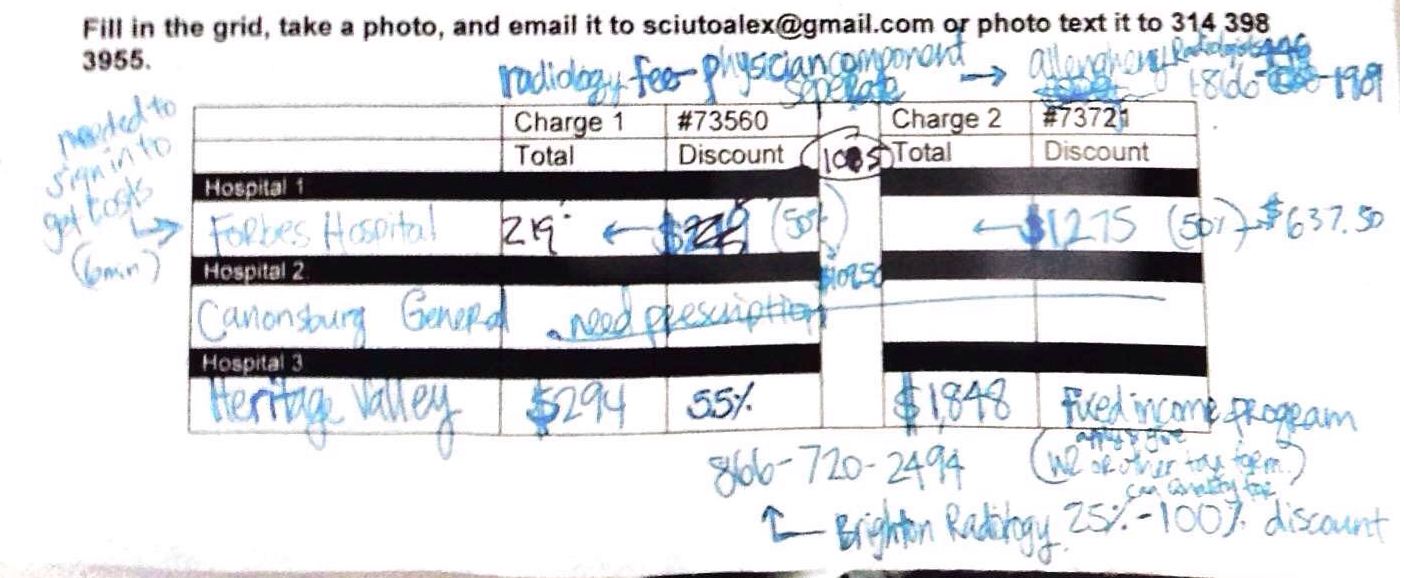 Fill in the grid, take a photo, and email it to sciutoalex@gmail.com or photo text it to 314 398
3955.
radiology fee - physician component → allengheny Radiologists
seperate 1866 -1989
needed to
sign into
get costs
(6min)
Charge 1 #73560 Charge 2 #73721
Total Discount Total Discount
Hospital 1
Forbes Hospital 219 ← (50%) ← $1275 (50%) → $637.50
Hospital 2
$109.50
Canonsburg General need prescription
Hospital 3
Heritage Valley $294 55% $1,848 Fixed income program
866-720-2494 (W2 or other tax form)
↑ Brighton Radiology 25% - 100% discount